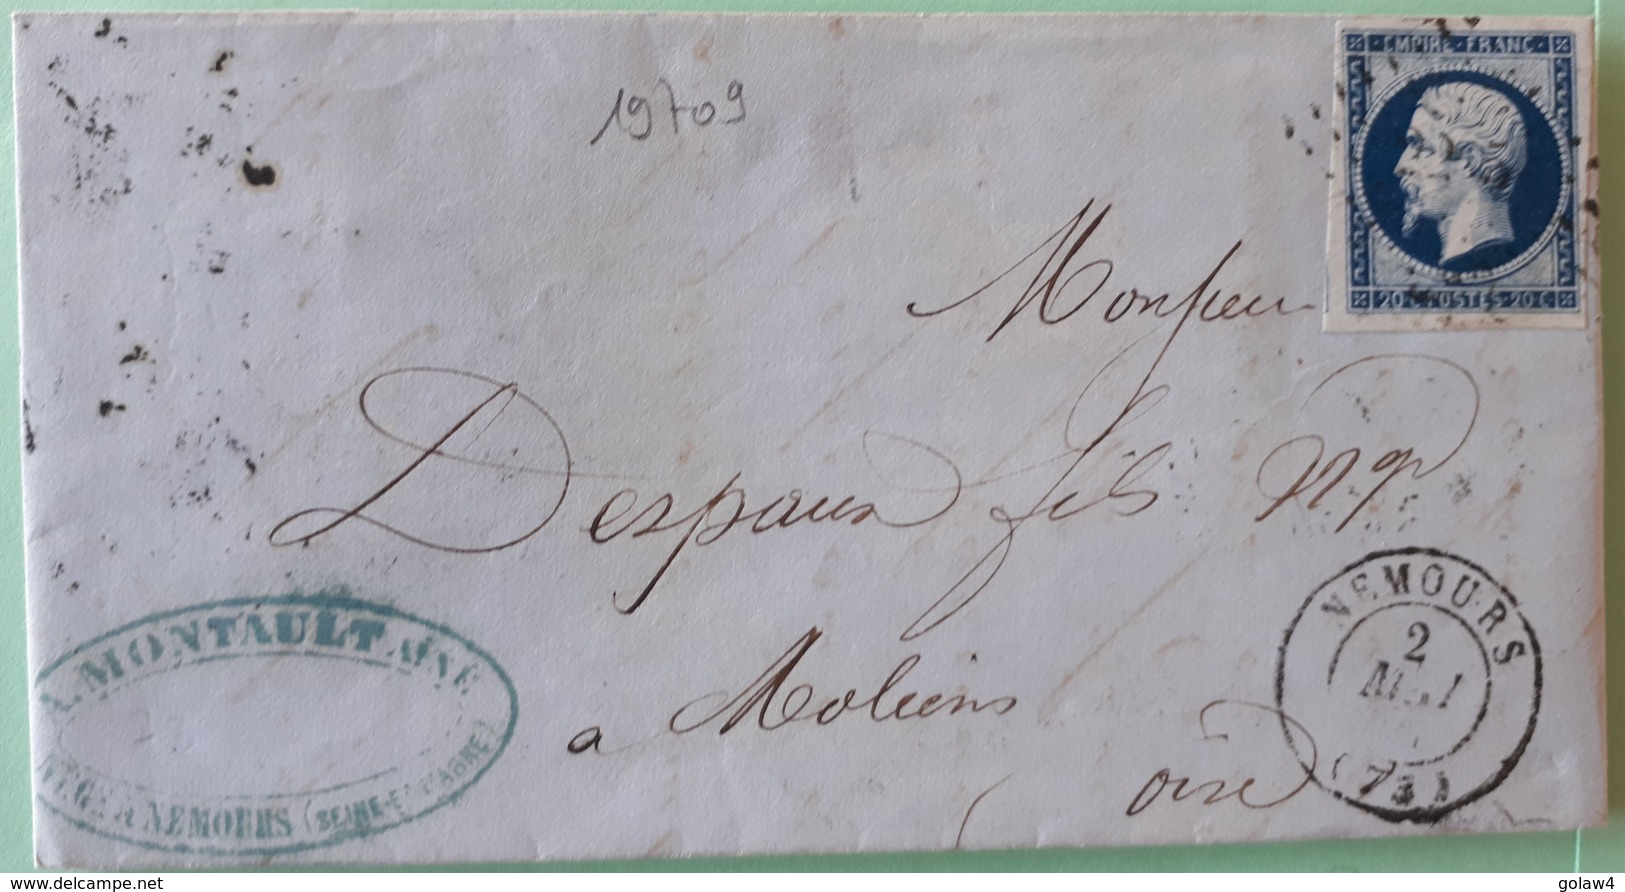 EMPIRE · FRANC ·
20 · C · POSTES · 20 · C
19709
Monsieur
Despaux fils ngt
a Moliens
oise
NEMOURS
2
MAI
(73)
A. MONTAULT AINÉ
NÉGT A NEMOURS (SEINE-ET-MARNE)
www.delcampe.net
golaw4